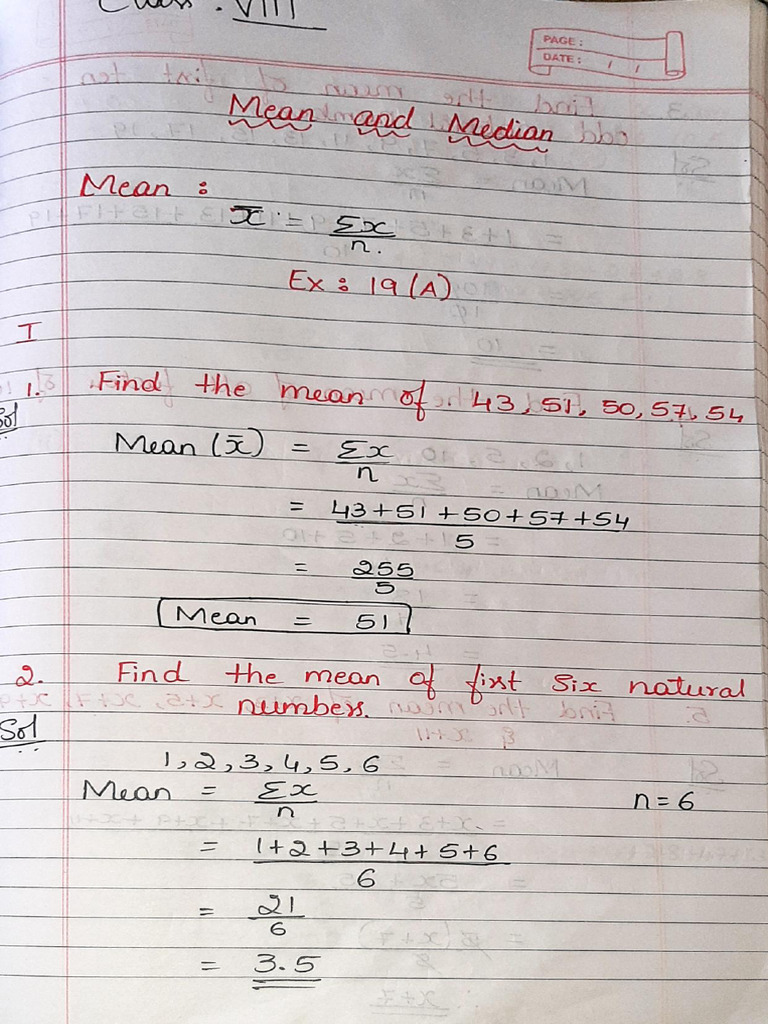 Class : VIII
PAGE :
DATE : / /
Mean and Median
Mean :
x̄ = Σx/n.
Ex : 19 (A)
I
1. Find the mean of 43, 51, 50, 57, 54
Sol
Mean (x̄) = Σx/n
= 43+51+50+57+54/5
= 255/5
Mean = 51
2. Find the mean of first six natural
numbers.
Sol
1, 2, 3, 4, 5, 6
Mean = Σx/n n=6
= 1+2+3+4+5+6/6
= 21/6
= 3.5